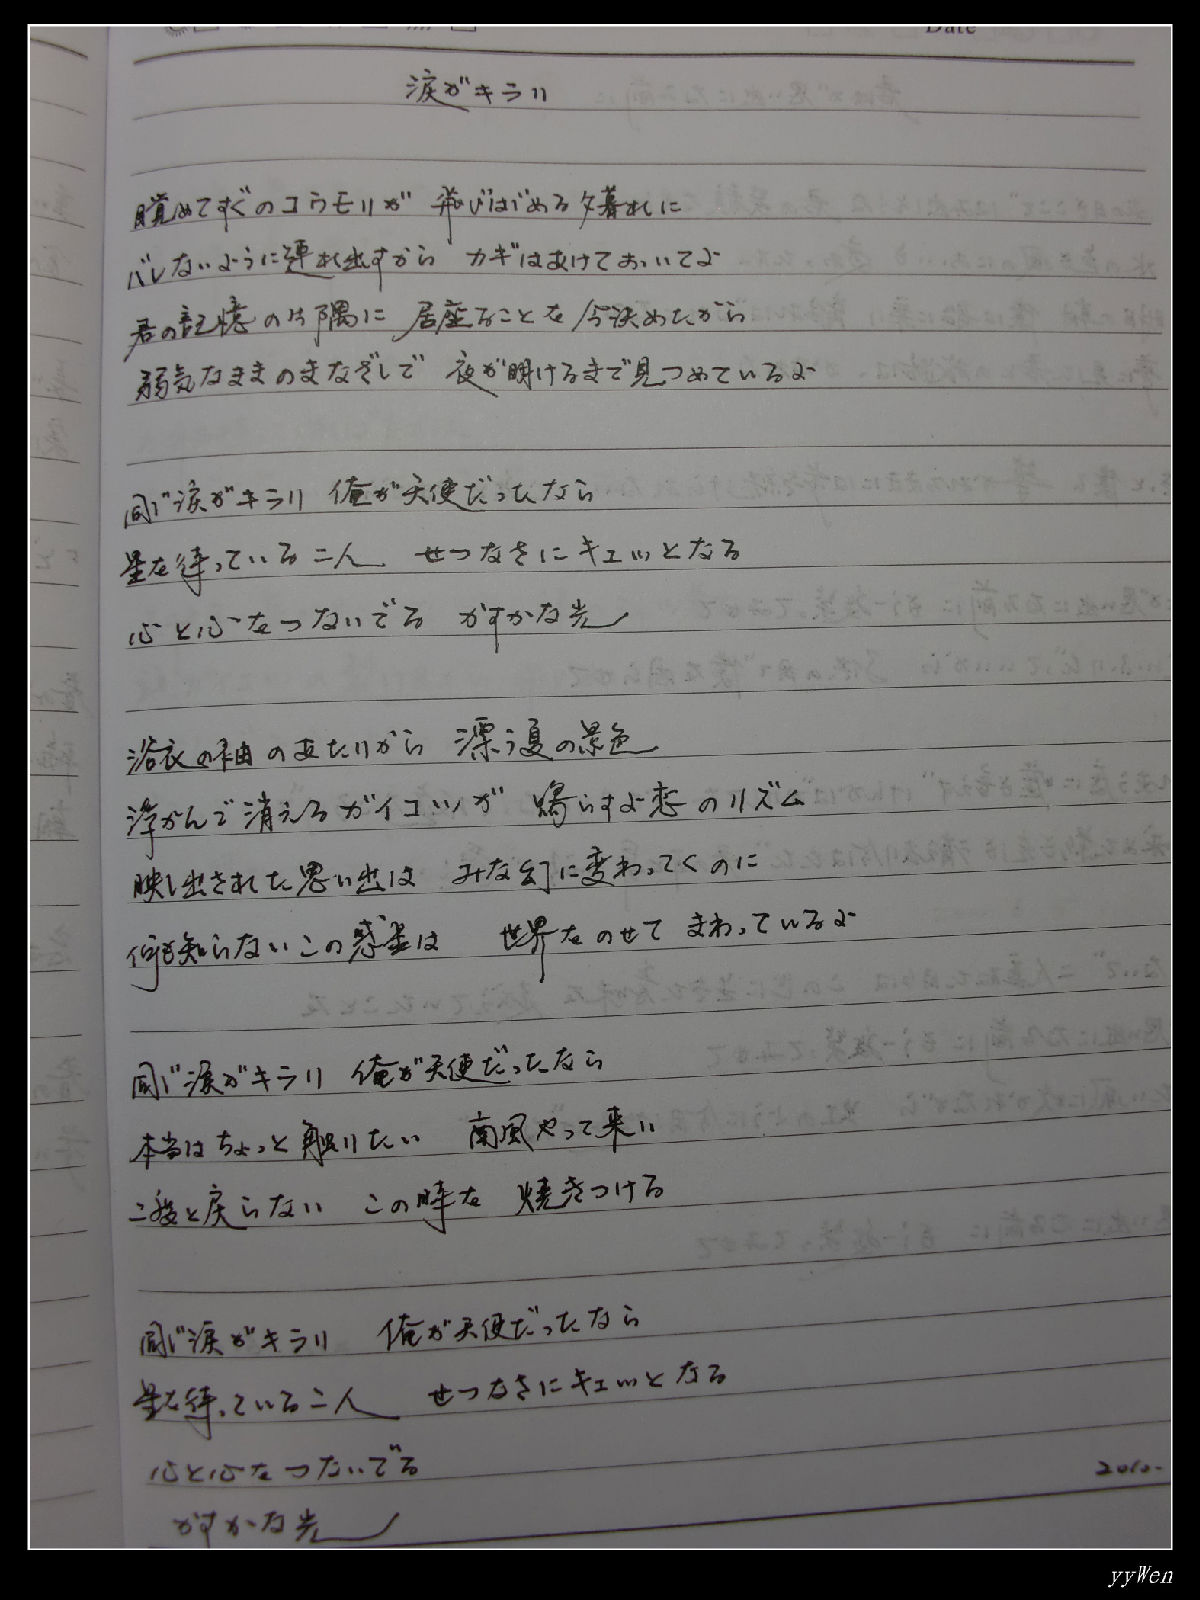 Date
涙がキラリ
目覚めてすぐのコウモリが 飛びはじめる夕暮れに
バレないように連れ出すから カギはあけておいてよ
君の記憶の片隅に 居座ることを今決めたから
弱気なままのまなざしで 夜が明けるまで見つめているよ
同じ涙がキラリ 俺が天使だったなら
星を待っている二人 せつなさにキュッとなる
心と心をつないでる かすかな光
浴衣の袖のあたりから 漂う夏の景色
浮かんで消えるガイコツが 鳴らすよ恋のリズム
映し出された思い出は みな幻に変わってくのに
何も知らないこの惑星は 世界をのせて まわっているよ
同じ涙がキラリ 俺が天使だったなら
本当はちょっと触りたい 南風やって来い
二度と戻らない この時を 焼きつける
同じ涙がキラリ 俺が天使だったなら
星を待っている二人 せつなさにキュッとなる
心と心をつないでる
かすかな光
2010.
yyWen